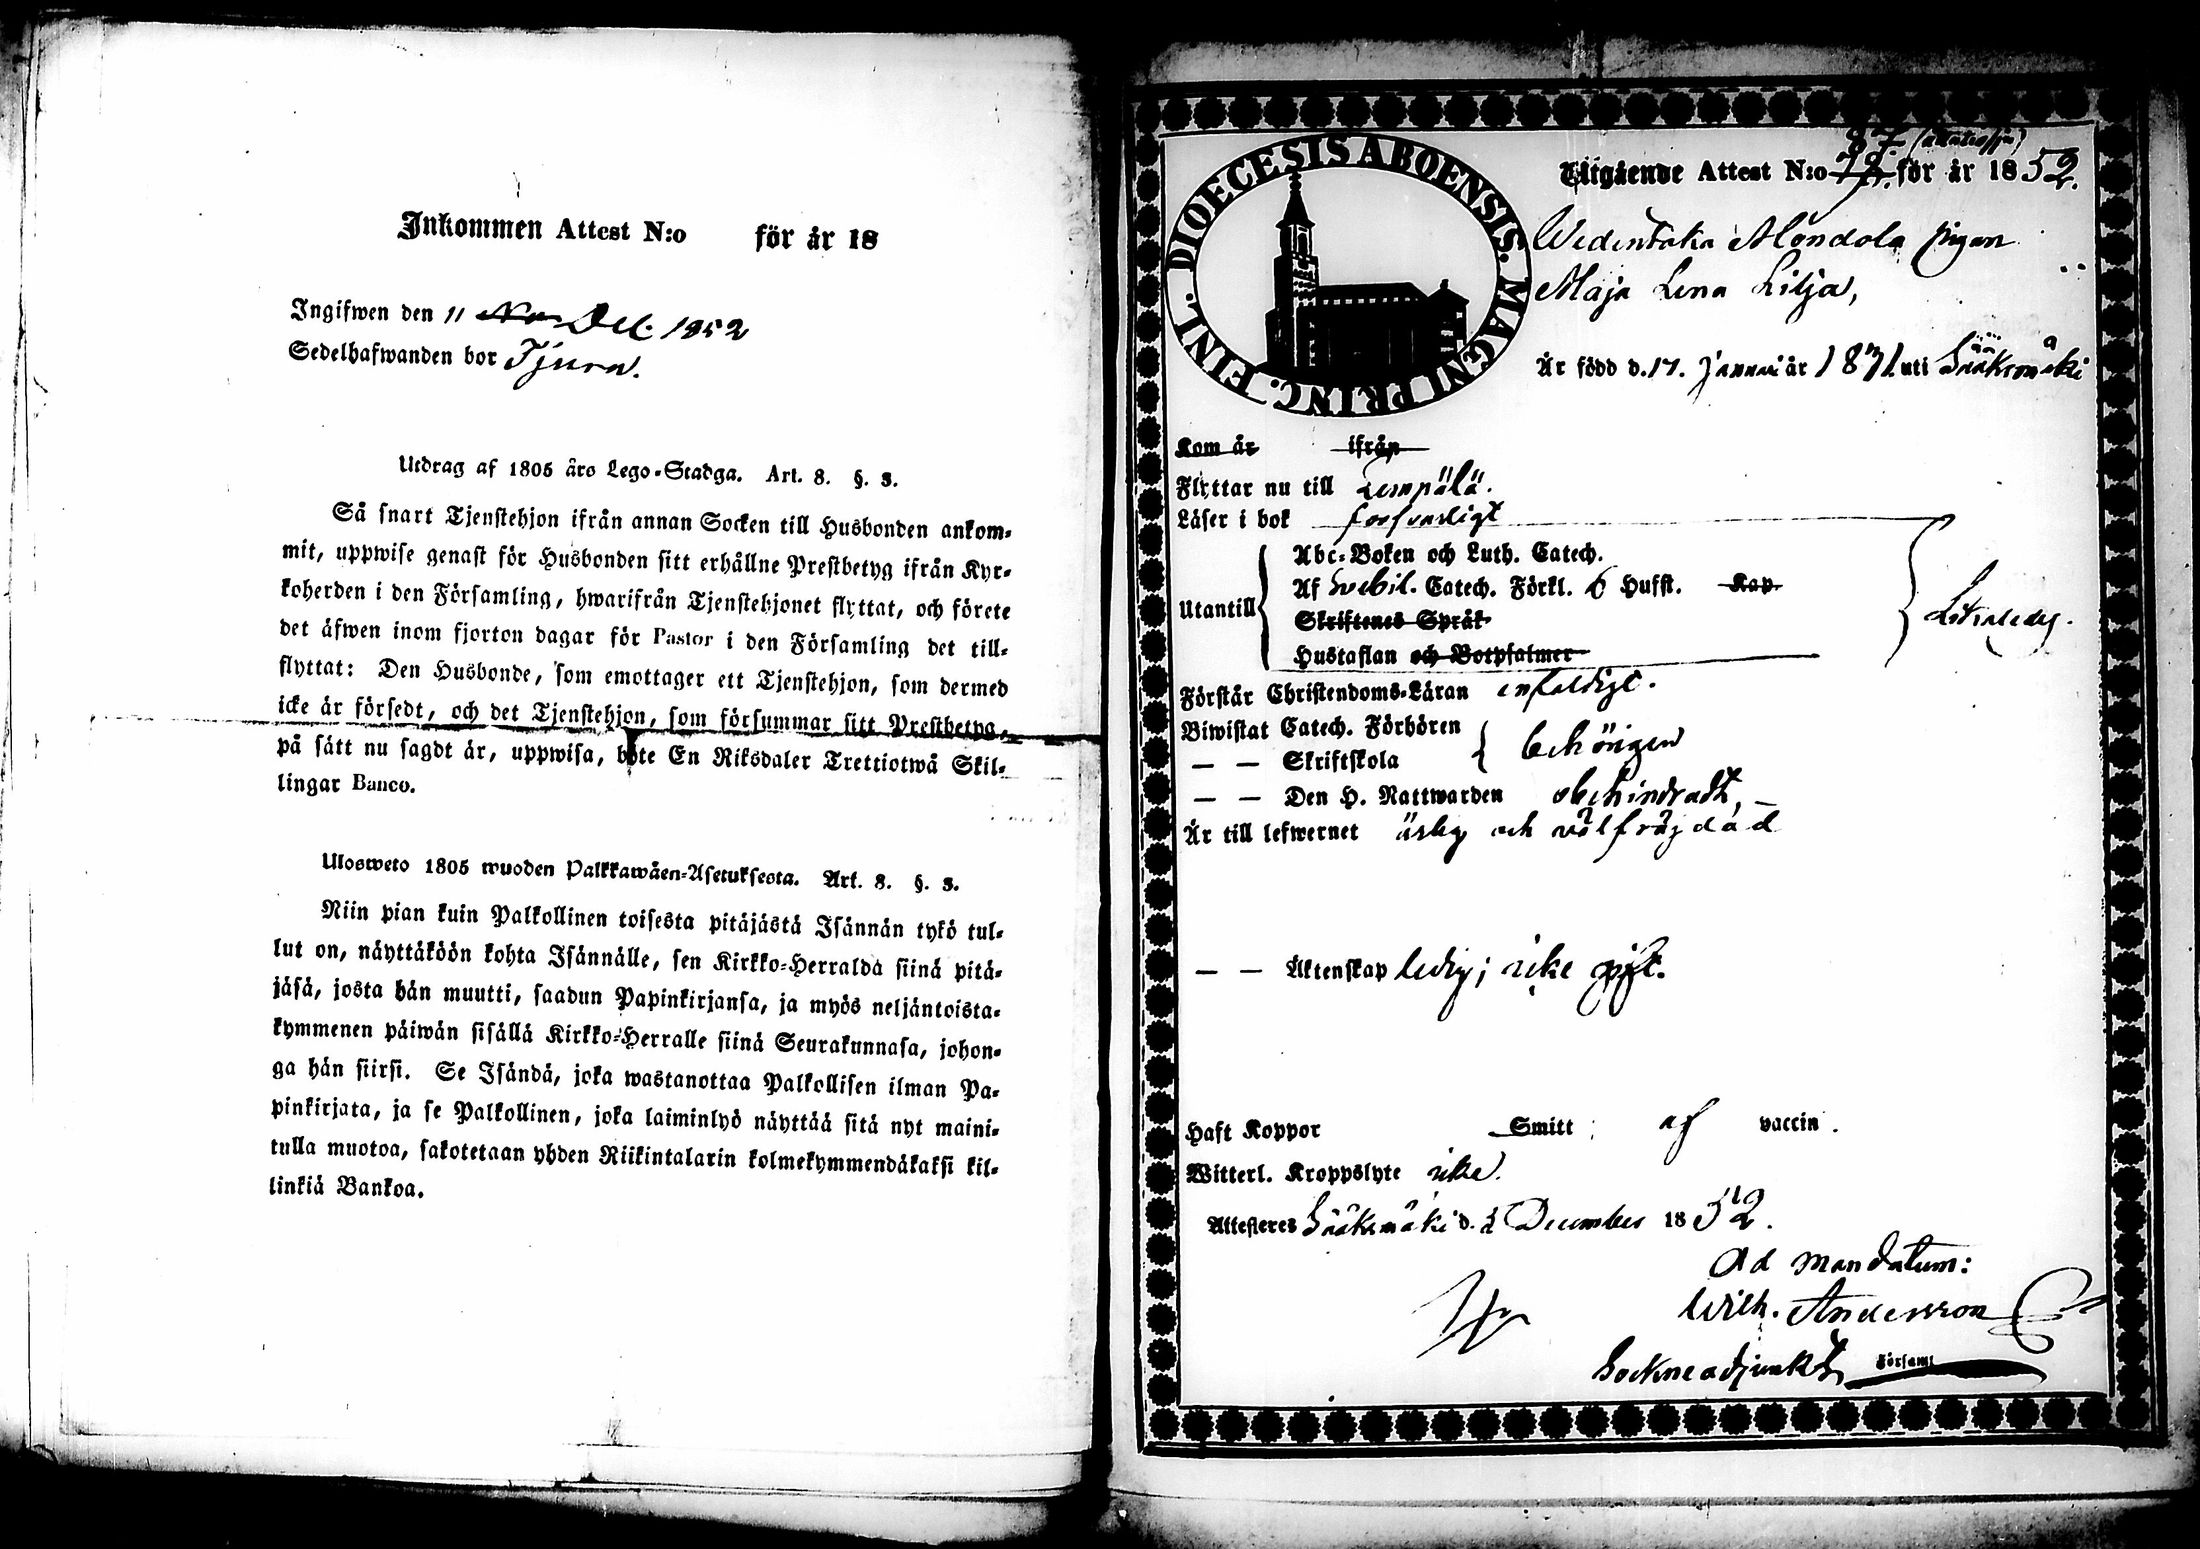 Inkommen Attest N:o för år 18
Ingifwen den 11 Dec. 1852
Sedelhafwanden bor
Utdrag af 1805 års Lego-Stadga. Art. 8. §. 3.
Så snart Tjenstehjon ifrån annan Socken till Husbonden ankom-
mit, uppwise genast för Husbonden sitt erhållne Prestbetyg ifrån Kyr-
koherden i den Församling, hwarifrån Tjenstehjonet flyttat, och förete
det äfwen inom fjorton dagar för Pastor i den Församling det till-
flyttat: Den Husbonde, som emottager ett Tjenstehjon, som dermed
icke är försedt, och det Tjenstehjon, som försummar sitt Prestbetyg,
på sätt nu sagdt är, uppwisa, böte En Riksdaler Trettiotwå Skil-
lingar Banco.
Ulosweto 1805 wuoden Palkkawäen-Asetuksesta. Art. 8. §. 3.
Niin pian kuin Palkollinen toisesta pitäjästä Isännän tykö tul-
lut on, näyttäköön kohta Isännälle, sen Kirkko-Herralda siinä pitä-
jäsä, josta hän muutti, saadun Papinkirjansa, ja myös neljäntoista-
kymmenen päiwän sisällä Kirkko-Herralle siinä Seurakunnasa, johon-
ga hän siirsi. Se Isändä, joka wastanottaa Palkollisen ilman Pa-
pinkirjata, ja se Palkollinen, joka laiminlyö näyttää sitä nyt maini-
tulla muotoa, sakotetaan yhden Riikintalarin kolmekymmendäkaksi kil-
linkiä Bankoa.
DIOECESIS ABOENSIS. MAGNI PRINC. FINL.
87.
Utgående Attest N:o 72. för år 1852.
pigan
Maja Lena Lilja,
Är född d. 17. Januari år 1831. uti Sääksmäki
Kom år ifrån
Flyttar nu till Lempälä.
Läser i bok försvarligt
Utantill
Abc-Boken och Luth. Catech.
Af Svebil. Catech. Förkl. 6 Hufst. Kap
Skriftenes Språk
Hustaflan och Botpsalmer
Förstår Christendoms-Läran enfaldigt.
Biwistat Catech. Förhören
— — Skriftskola
behörigen
— — Den H. Nattwarden obehindradt,
Är till lefwernet ärlig och välfräjdad
— — Äktenskap ledig; icke gift.
Haft Koppor Smitt af vaccin.
Witterl. Kroppslyte icke.
Attesteres Sääksmäki d. December 1852.
Ad mandatum:
Wilh. Andersson
Sockneadjunkt
Församl